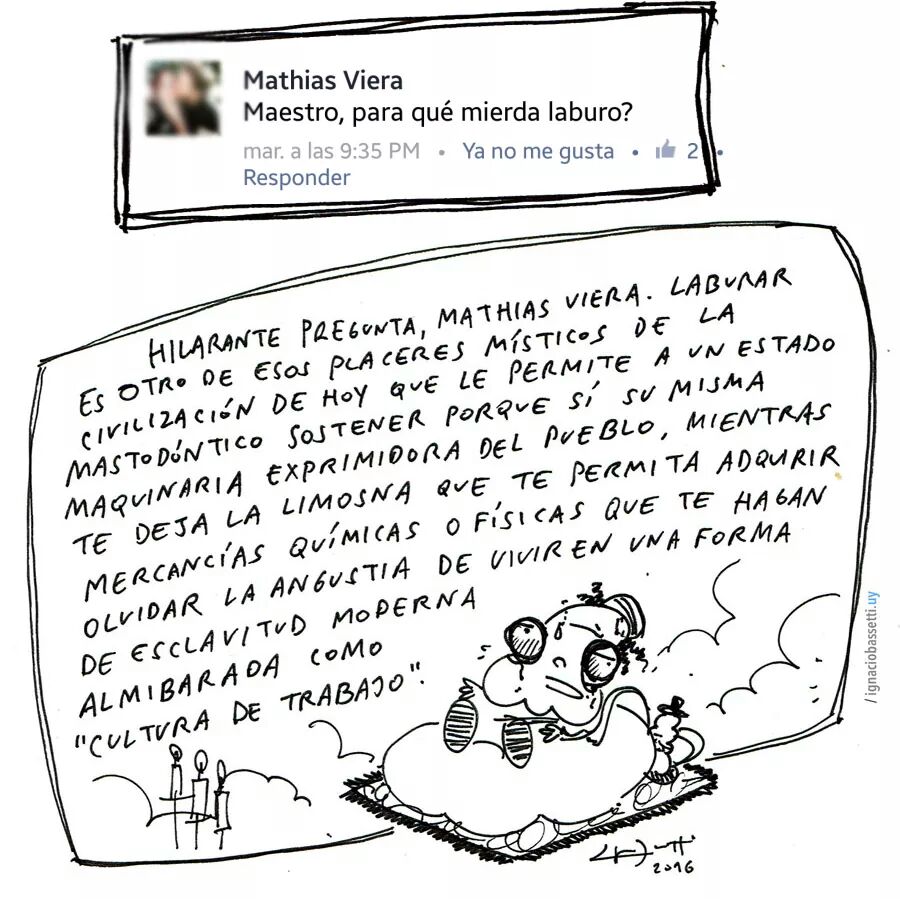 Mathias Viera
Maestro, para qué mierda laburo?
mar. a las 9:35 PM • Ya no me gusta • 2 •
Responder
HILARANTE PREGUNTA, MATHIAS VIERA. LABURAR
ES OTRO DE ESOS PLACERES MÍSTICOS DE LA
CIVILIZACIÓN DE HOY QUE LE PERMITE A UN ESTADO
MASTODÓNTICO SOSTENER PORQUE SÍ SU MISMA
MAQUINARIA EXPRIMIDORA DEL PUEBLO, MIENTRAS
TE DEJA LA LIMOSNA QUE TE PERMITA ADQURIR
MERCANCÍAS QUÍMICAS O FÍSICAS QUE TE HAGAN
OLVIDAR LA ANGUSTIA DE VIVIR EN UNA FORMA
DE ESCLAVITUD MODERNA
ALMIBARADA COMO
"CULTURA DE TRABAJO".
2016
/ignaciobassetti.uy